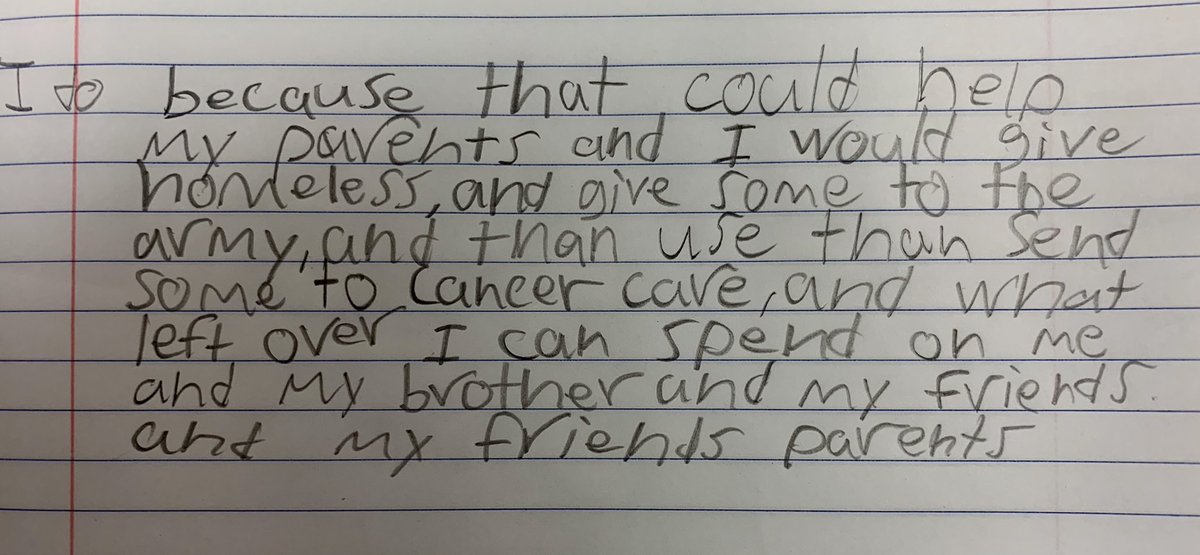 I do because that could help
my parents and I would give
homeless, and give some to the
army, and than use than send
some to cancer care, and what
left over I can spend on me
and my brother and my friends.
and my friends parents